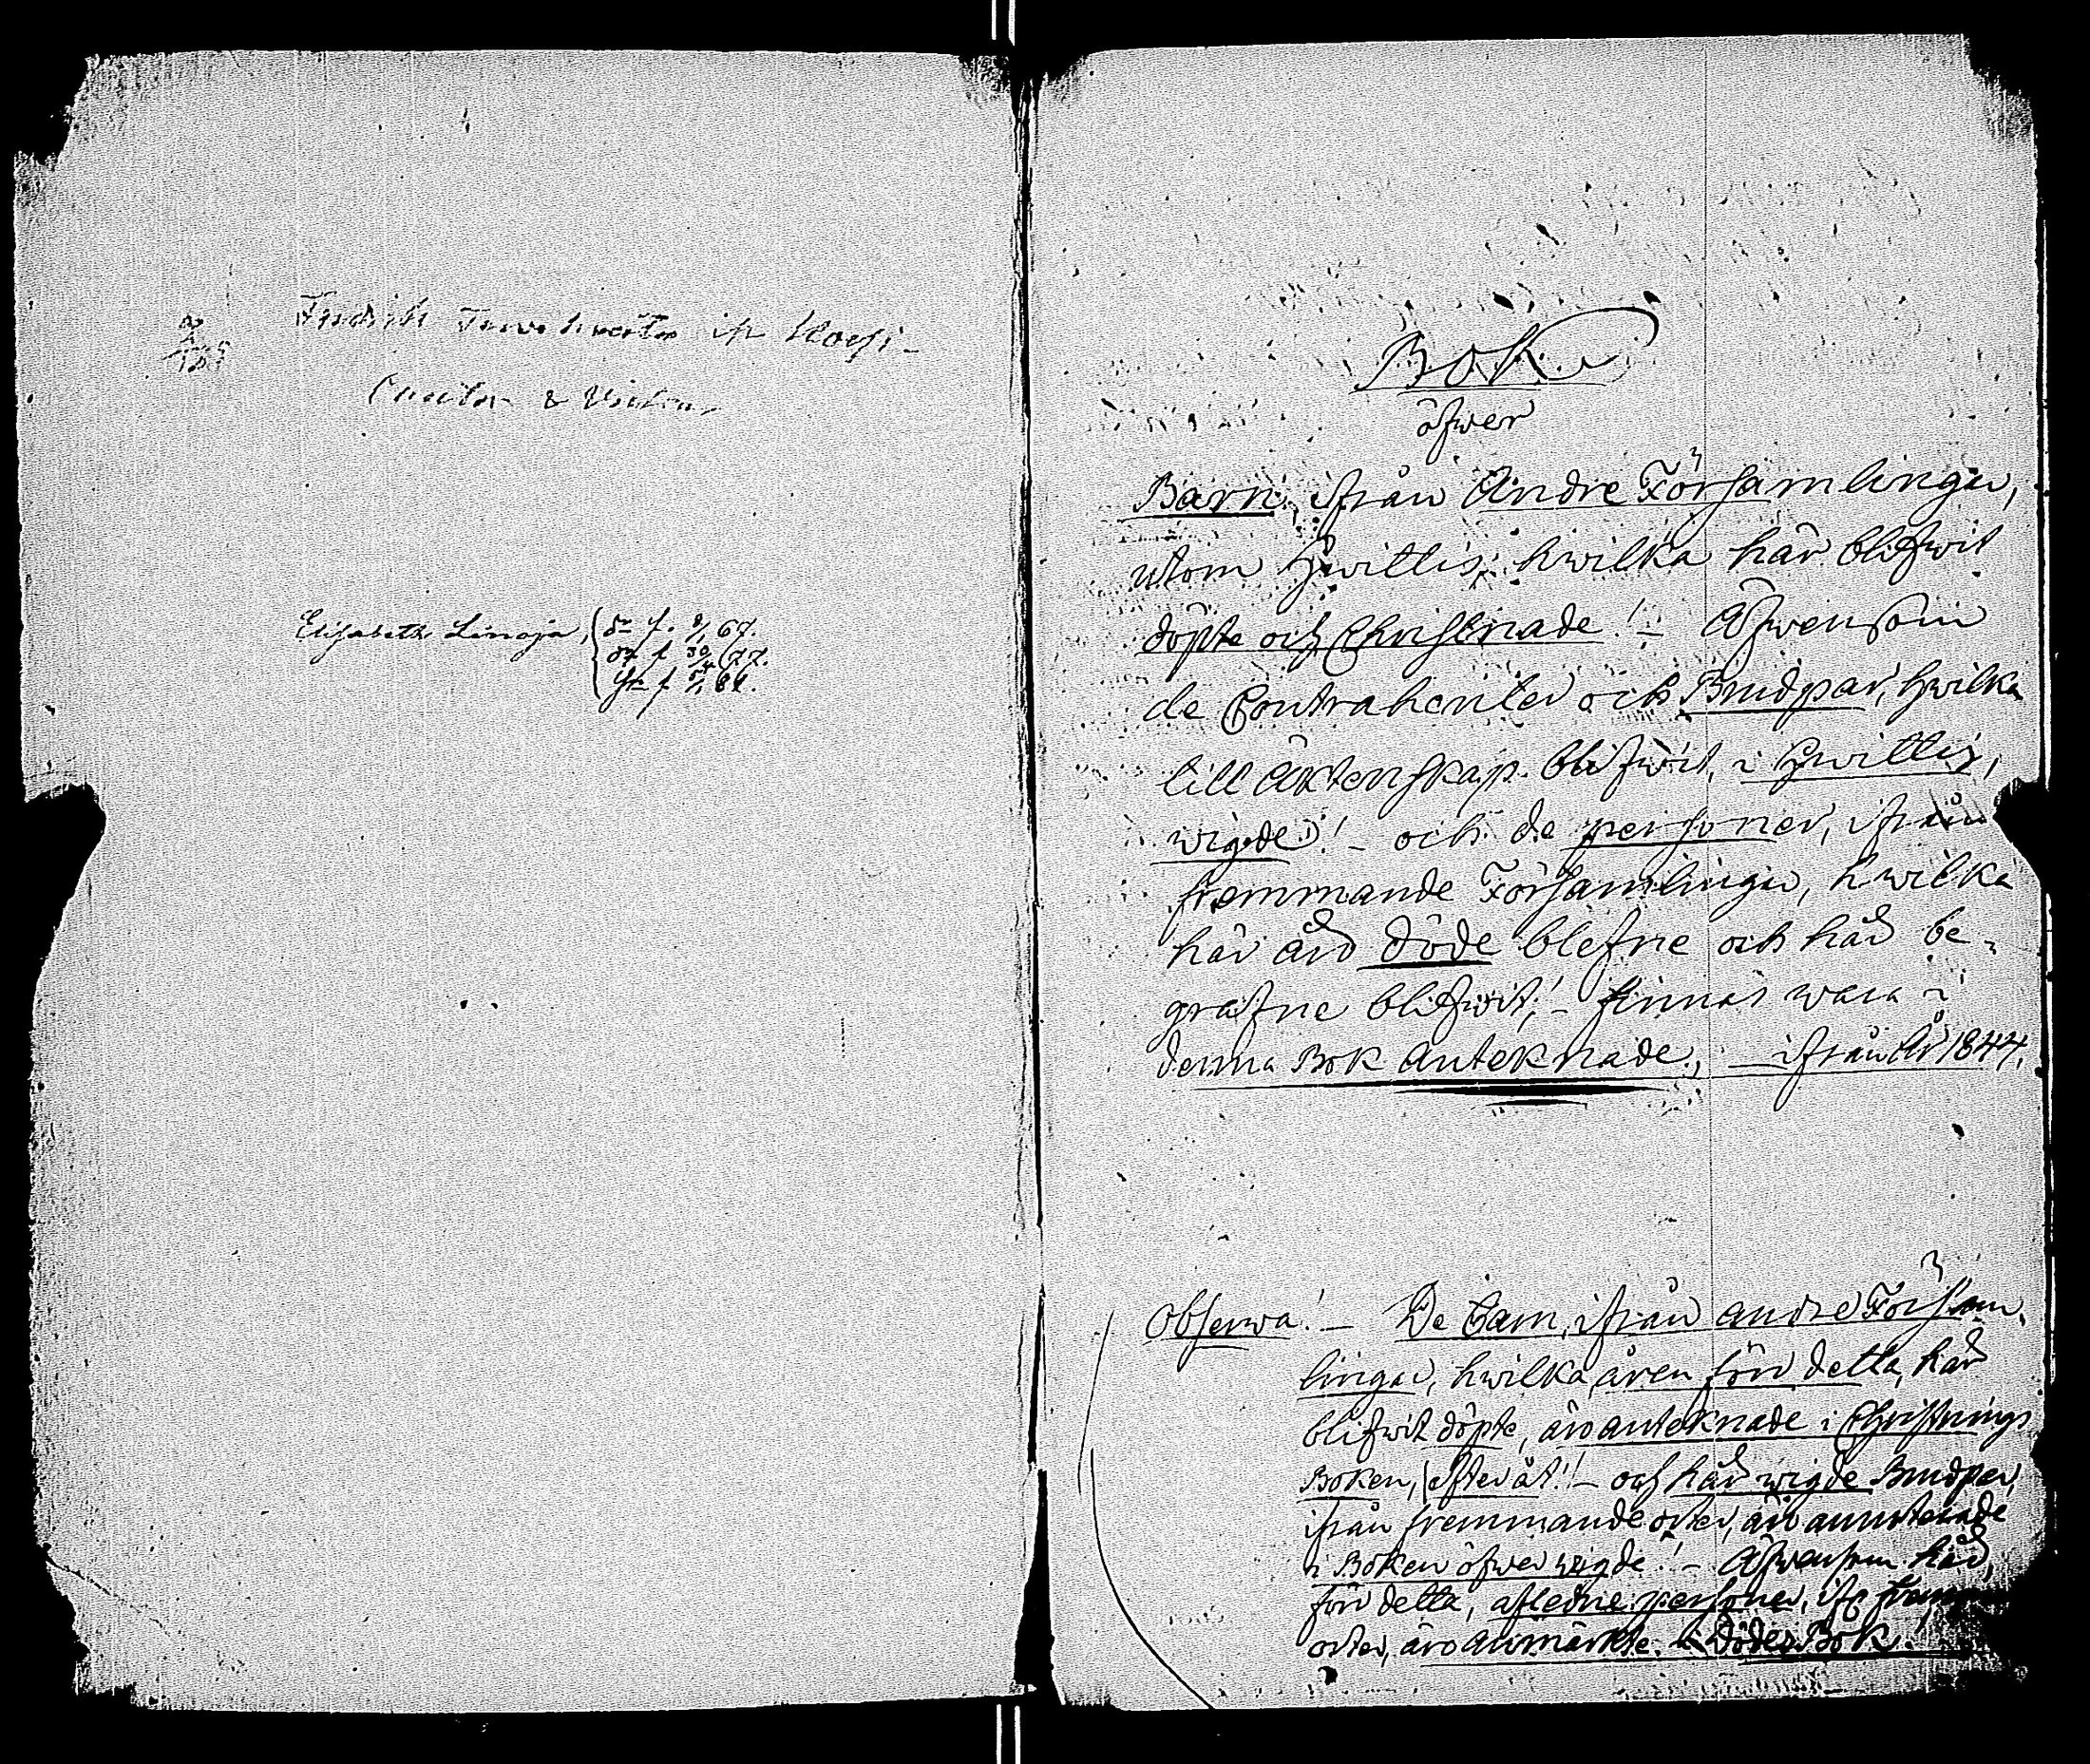 Elisabeth Linoja, { dr f. 9/1 67.
dr f 30/4 77.
Bok
öfwer
Barn, ifrån Andre Församlingar,
utom Hwittis, hwilka här blifwit
döpte och Christnade! – Äfwensom
de Contrahenter och Brudpar, hwilka
till Äktenskap blifwit, i Hwittis,
wigde! – och de personer, ifrån
fremmande Församlingar, hwilka
här äro döde blefne och här be-
grafne blifwit; – finnas wara i
denna Bok Anteknade, – ifrån År 1844.
Observa! – De Barn, ifrån andre Försam-
lingar, hwilka, även förr detta, här
blifwit döpte, äro anteknade i Christnings
Boken, efteråt! – och här wigde Brudpar,
ifrån fremmande orter, äro annoterade
i Boken öfwer wigde! – Äfwensom här,
förr detta, afledne personer, ifr.
orter, äro anmärkte i Dödes Bok!